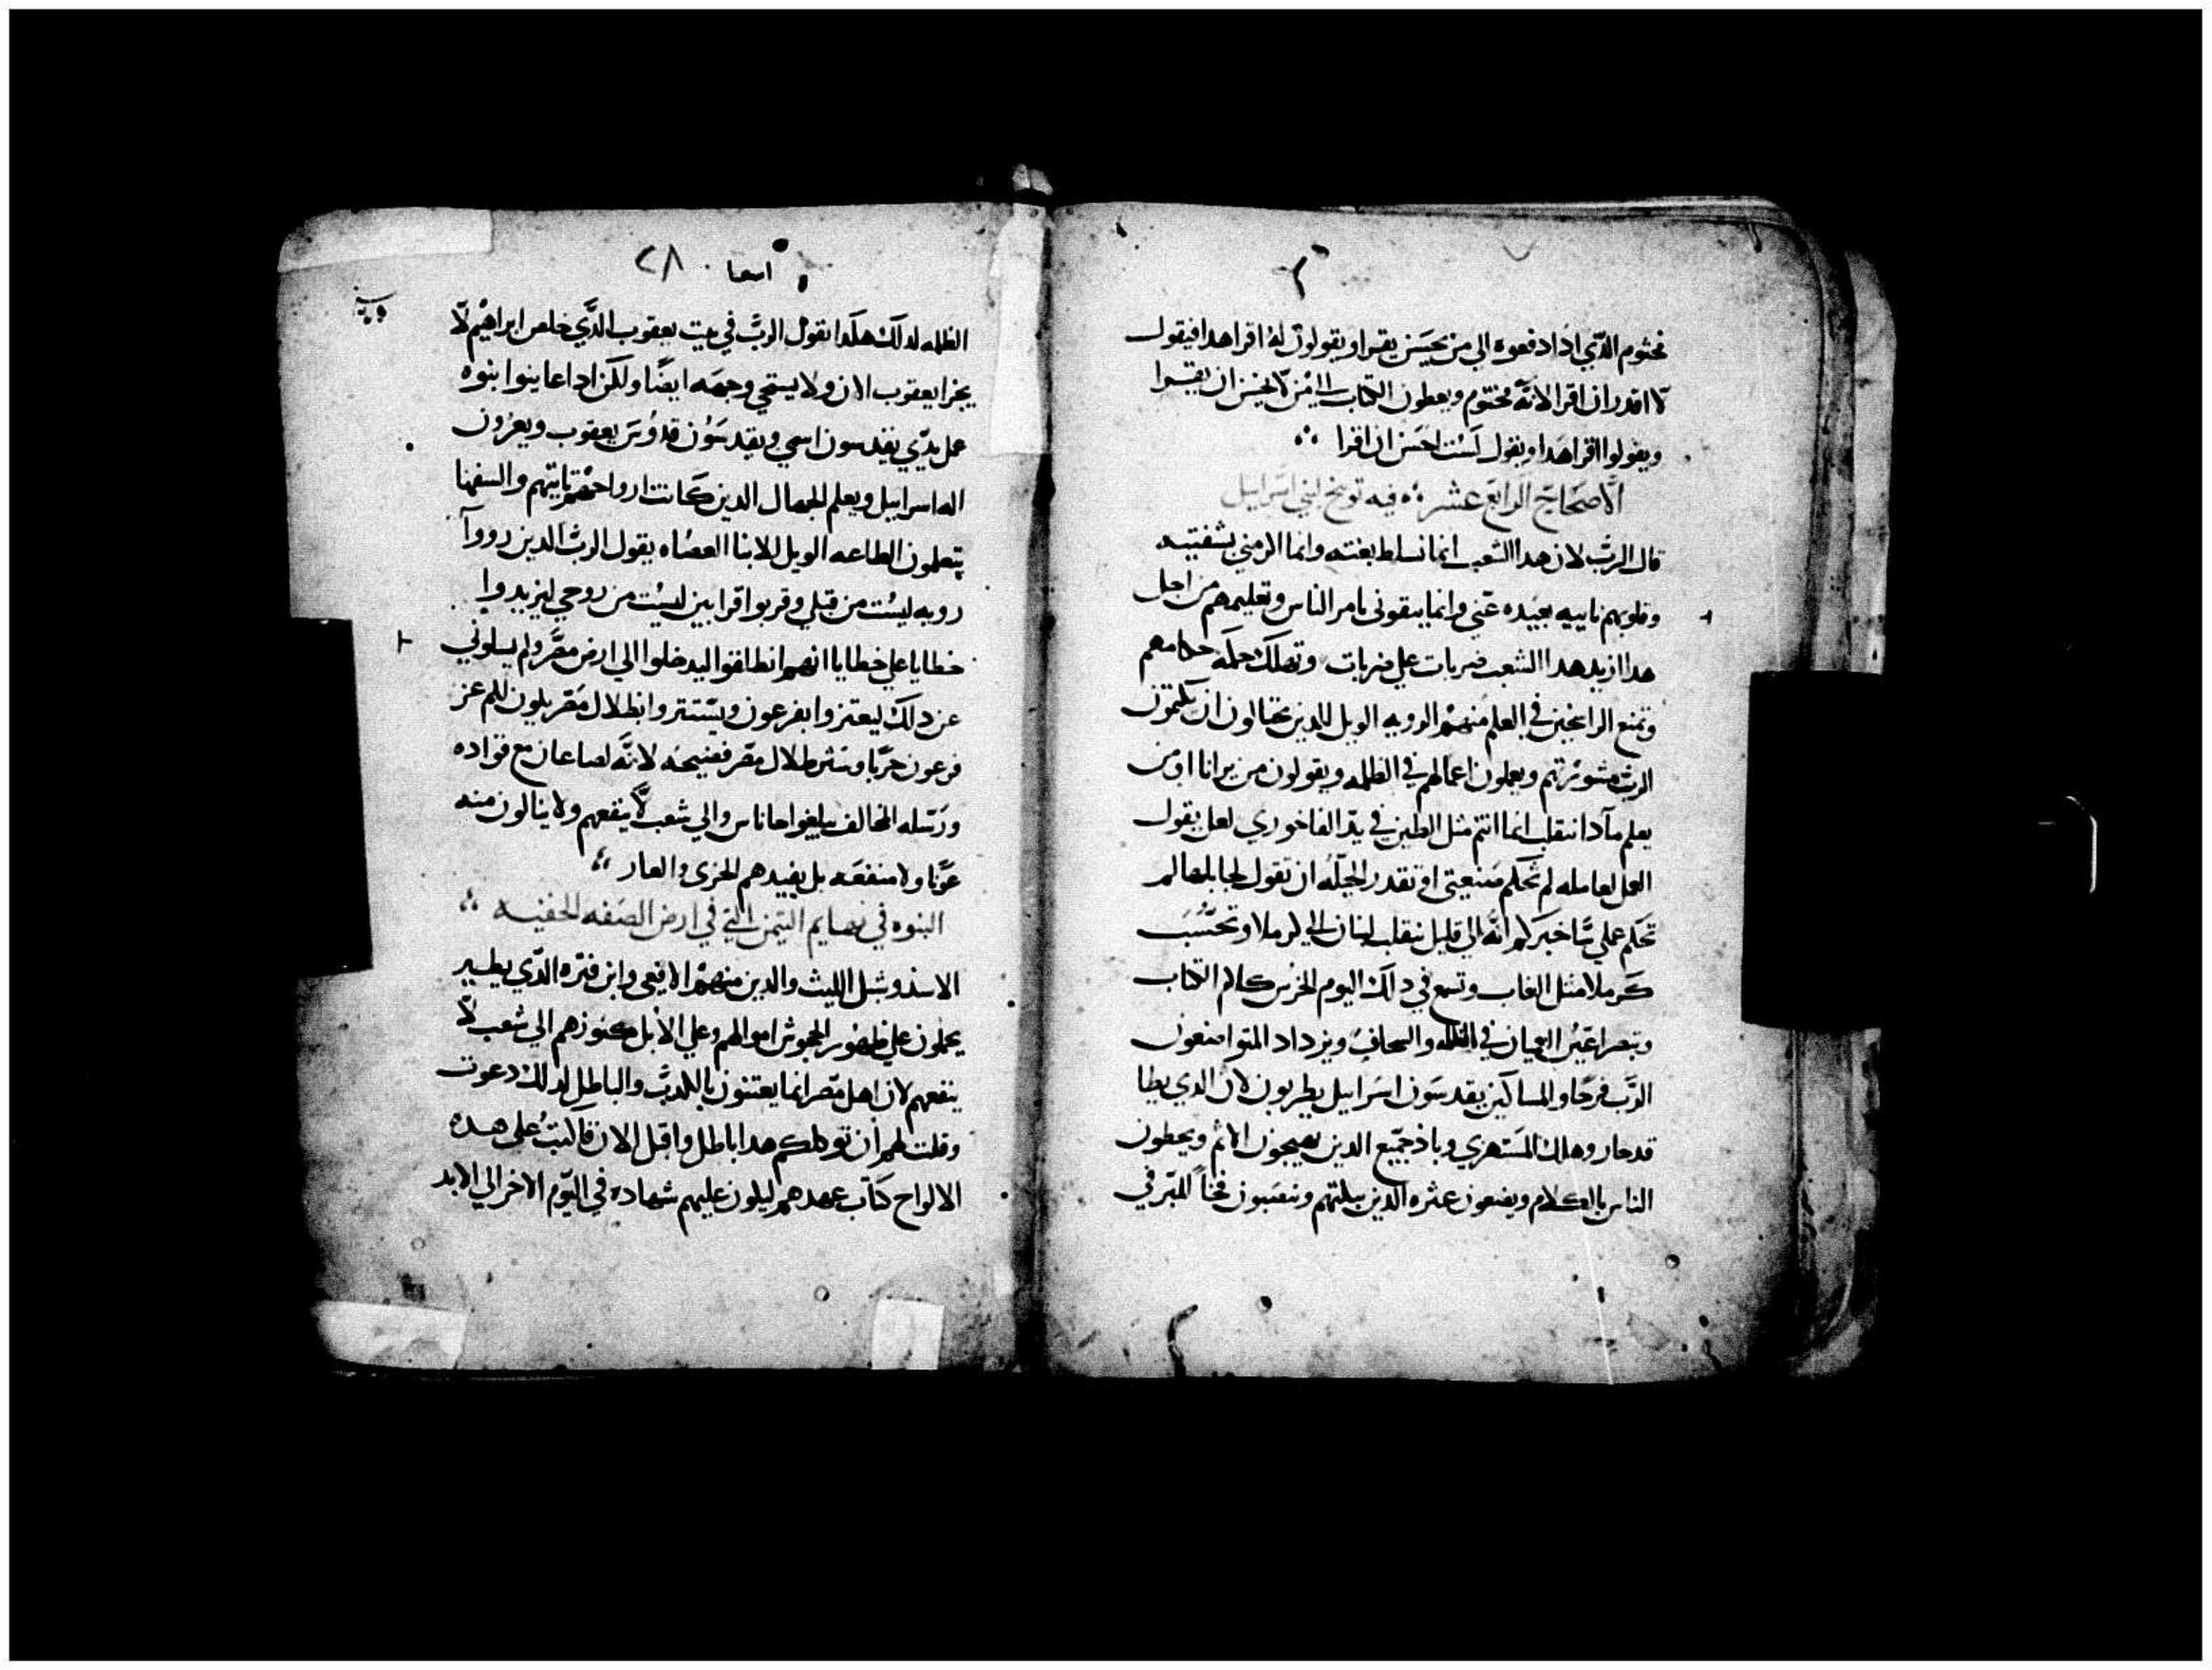 مختوم الدي ادا دفعوه الي من يحسن يقرا ويقولون له اقرا هدا فيقول
لا اقدر ان اقرا لانه مختوم ويعطون الكتاب الي من لا يحسن ان يقرا
ويقولوا اقرا هدا ويقول لست احسن ان اقرا
الاصحاح الرابع عشر فيه توبيخ لبني اسراييل
قال الرب لان هدا الشعب انما تسلط بغتته وانما اكرمني بشفتيه
وقلوبهم ناييه بعيده عني وانما يتقوني بامر الناس وتعليمهم من اجل
هدا ازيد هدا الشعب ضربات علي ضربات وتهلك حكمه حكماهم
وتمنع الراغبين في العلم منهم الرويه الويل للدين يحتالون ان يكتمون
الرب مشورتهم ويعملون اعمالهم في الظلمه ويقولون من يرانا او من
يعلم مادا ننقلب انما انتم مثل الطين في يد الفاخوري لعل يقول
العمل لعامله لم تحكم صنعتي او تقدر الجبله ان تقول لجابلها لم
تحكم علي ساخبركم انه الي قليل ينقلب لبنان الي كرملا وتحسب
كرملا مثل الغاب وتسمع في دلك اليوم الخرس كلام الكتاب
وتبصر اعين العميان في الظلمه والسحاب ويزداد المتواضعون
الرب فرحا والمساكين يقدسون اسراييل يطربون لان الدي يطا
قد صار وهلك المستهزي وباد جميع الدين يهيجون الاثم ويحطون
الناس بالكلام ويضعون عثره الدين يبكتهم وينصبون فخا للبر في
اشعيا ٢٨
الظلمه لدلك هكدا يقول الرب في بيت يعقوب الدي خلص ابراهيم لا
يخزا يعقوب الان ولا يستحي وجهه ايضا ولكن ادا عاينوا بنوه
عمل يدي يقدسون اسمي ويقدسون قدوس يعقوب ويعزون
اله اسراييل ويعلم الجهال الدين كانت ارواحهم تايهم والسفها
يتعلمون الطاعه الويل للابنا العصاه يقول الرب الدين رووا
رويه ليست من قبلي وقربوا قرابين ليست من روحي ليزيدوا
خطايا علي خطايا انهم انطلقوا ليدخلوا الي ارض مصر ولم يسلوني
عن دلك ليعتزوا بفرعون ويستتروا بظلال مصر يكون لكم عز
فرعون خزيا وستر ظلال مصر فضيحه لانه لصاعان مع قواده
ورسله المخالف يبلغوا حاناس والي شعب لا ينفعهم ولا ينالون منه
عونا ولا منفعه بل يفيدهم الخزي والعار
النبوه في بهايم التيمن التي في ارض الضفه الحفيه
الاسد وشبل الليث والدين منهم الافعي وابن فتره الدي يطير
يحملون علي ظهور الجحوش اموالهم وعلي الابل كنوزهم الي شعب لا
ينفعهم لان اهل مصر انما يعتنون بالكدب والباطل لدلك دعوت
وقلت لهم ان توكلكم هدا باطل واقبل الان فاكتب علي هده
الالواح كتاب عهدهم ليكون عليهم شهاده في اليوم الاخر الي الابد